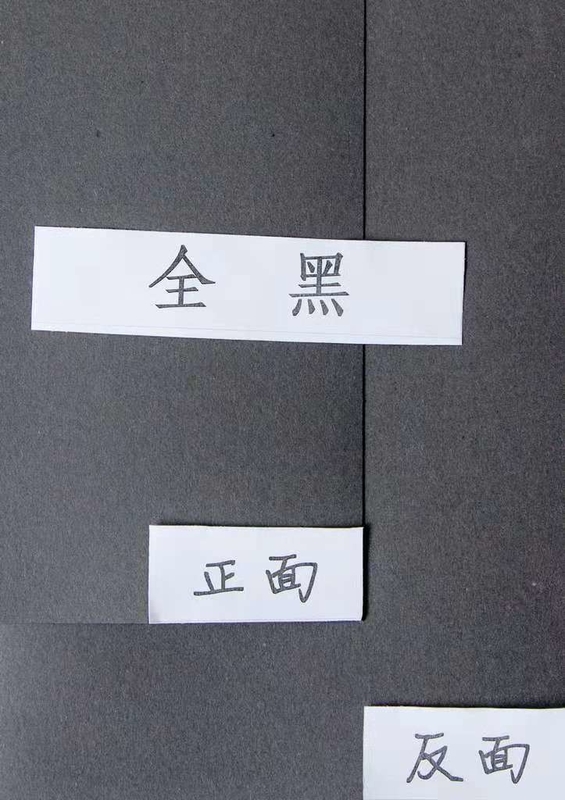 全 黑
正面
反面